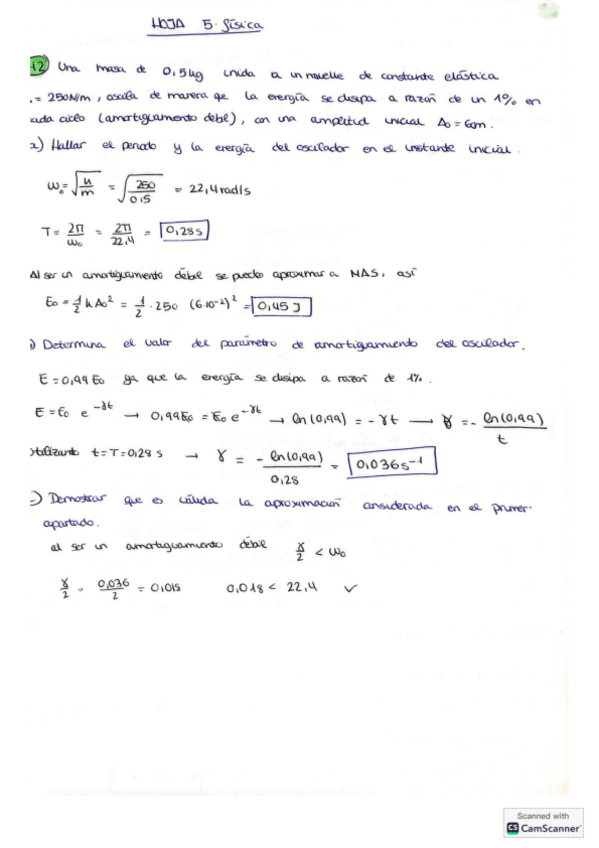 HOJA 5. física
12 Una masa de 0,5 kg unida a un muelle de constante elástica
.= 250N/m, oscila de manera que la energía se disipa a razón de un 1% en
ada ciclo (amortiguamiento débil), con una amplitud inicial A₀ = 6cm.
a) Hallar el periodo y la energía del oscilador en el instante inicial.
W₀ = √(k/m) = √(250/0,5) = 22,4 rad/s
T = 2π/ω₀ = 2π/22,4 = 0,28 s
Al ser un amortiguamiento débil se puede aproximar a MAS, así
E₀ = 1/2 k A₀² = 1/2 · 250 (6·10⁻²)² = 0,45 J
) Determina el valor del parámetro de amortiguamiento del oscilador.
E = 0,99 E₀ ya que la energía se disipa a razón de 1%.
E = E₀ e^(-γt) → 0,99E₀ = E₀ e^(-γt) → ln(0,99) = -γt → γ = - ln(0,99)/t
Utilizando t = T = 0,28 s → γ = - ln(0,99)/0,28 = 0,036 s⁻¹
) Demostrar que es válida la aproximación considerada en el primer
apartado.
al ser un amortiguamiento débil γ/2 < ω₀
γ/2 = 0,036/2 = 0,018 0,018 < 22,4 ✓
Scanned with
CS CamScanner